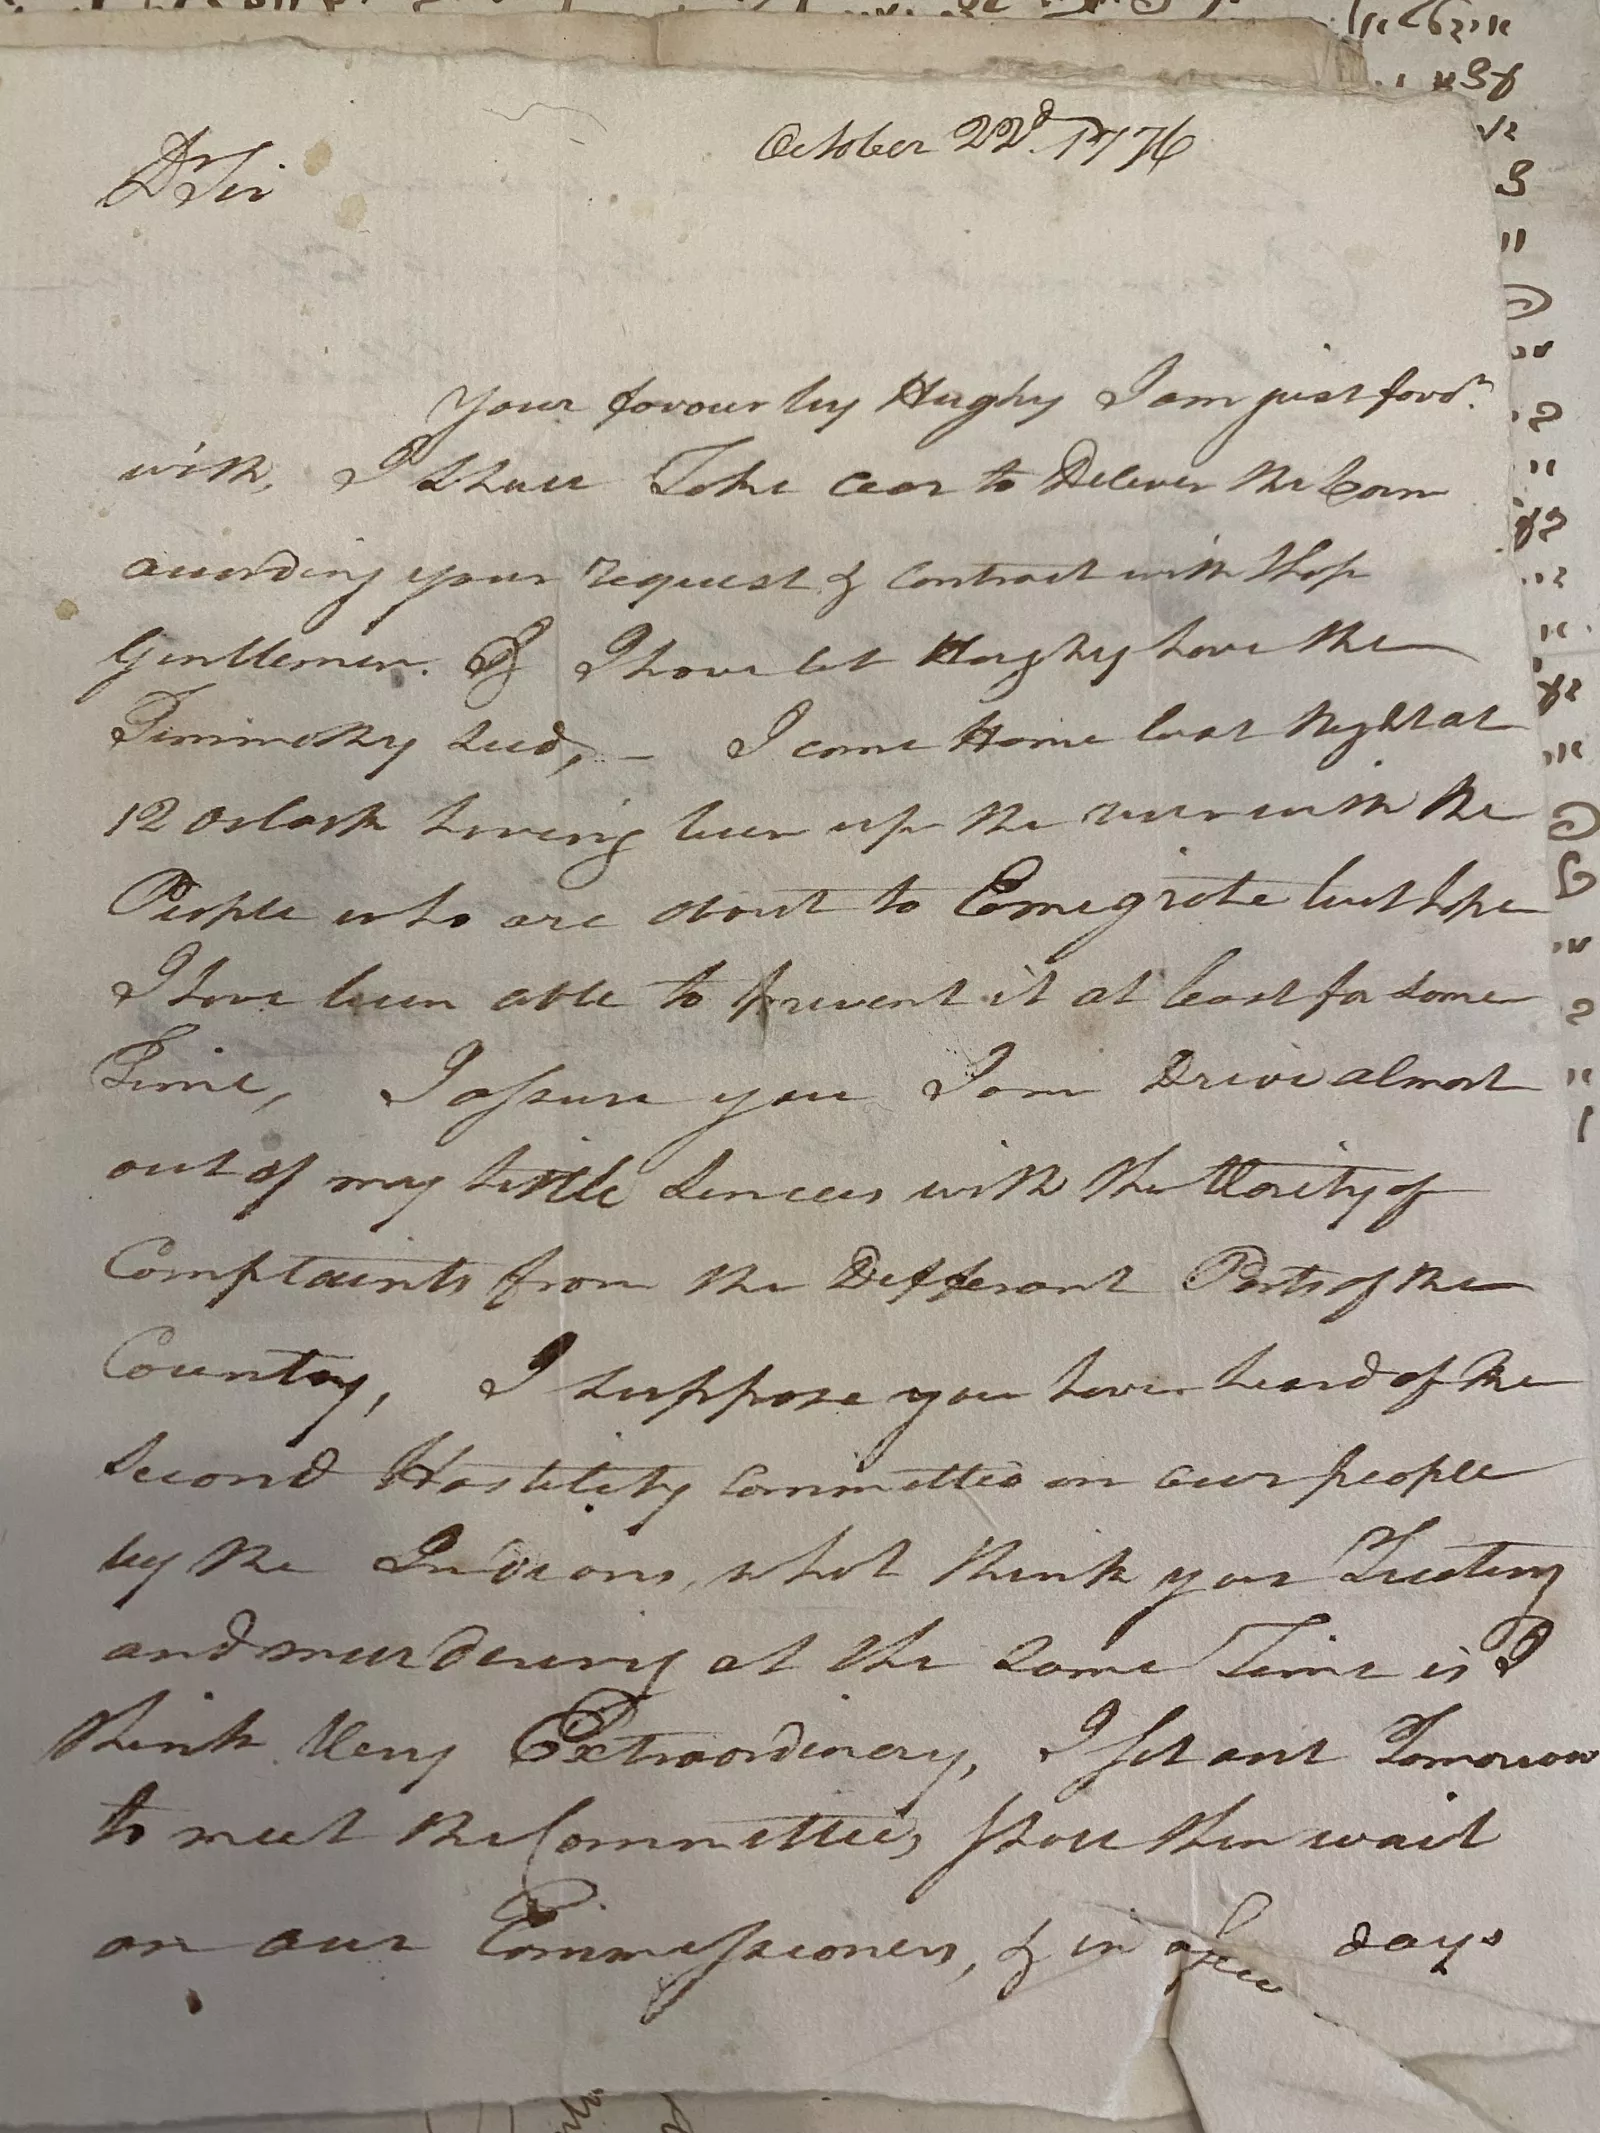 October 22d. 1776
Dr Sir
Your favour by Hughy I am just favd.
with, I shall Take cear to Deliver the Corn
acording your request & contract with thos
Gentlemen. & I have let Hughy have the
Timmothy seed, - I came Home last Night at
12 Oclock having been up the river with the
People who are about to Emegrate but hope
I have been able to prevent it at least for some
Time, I assure you I am Drive almost
out of my little Sences with the Varity of
Complaints from the Defferant Parts of the
Country, I suppose you have heard of the
second Hostility committed on our people
by the Indians, what think you Treating
and murdering at the same Time is I
think Very Extraordinery, I set out Tomorrow
to meet the Committee, shall then wait
on our Commissioners, & in a few days